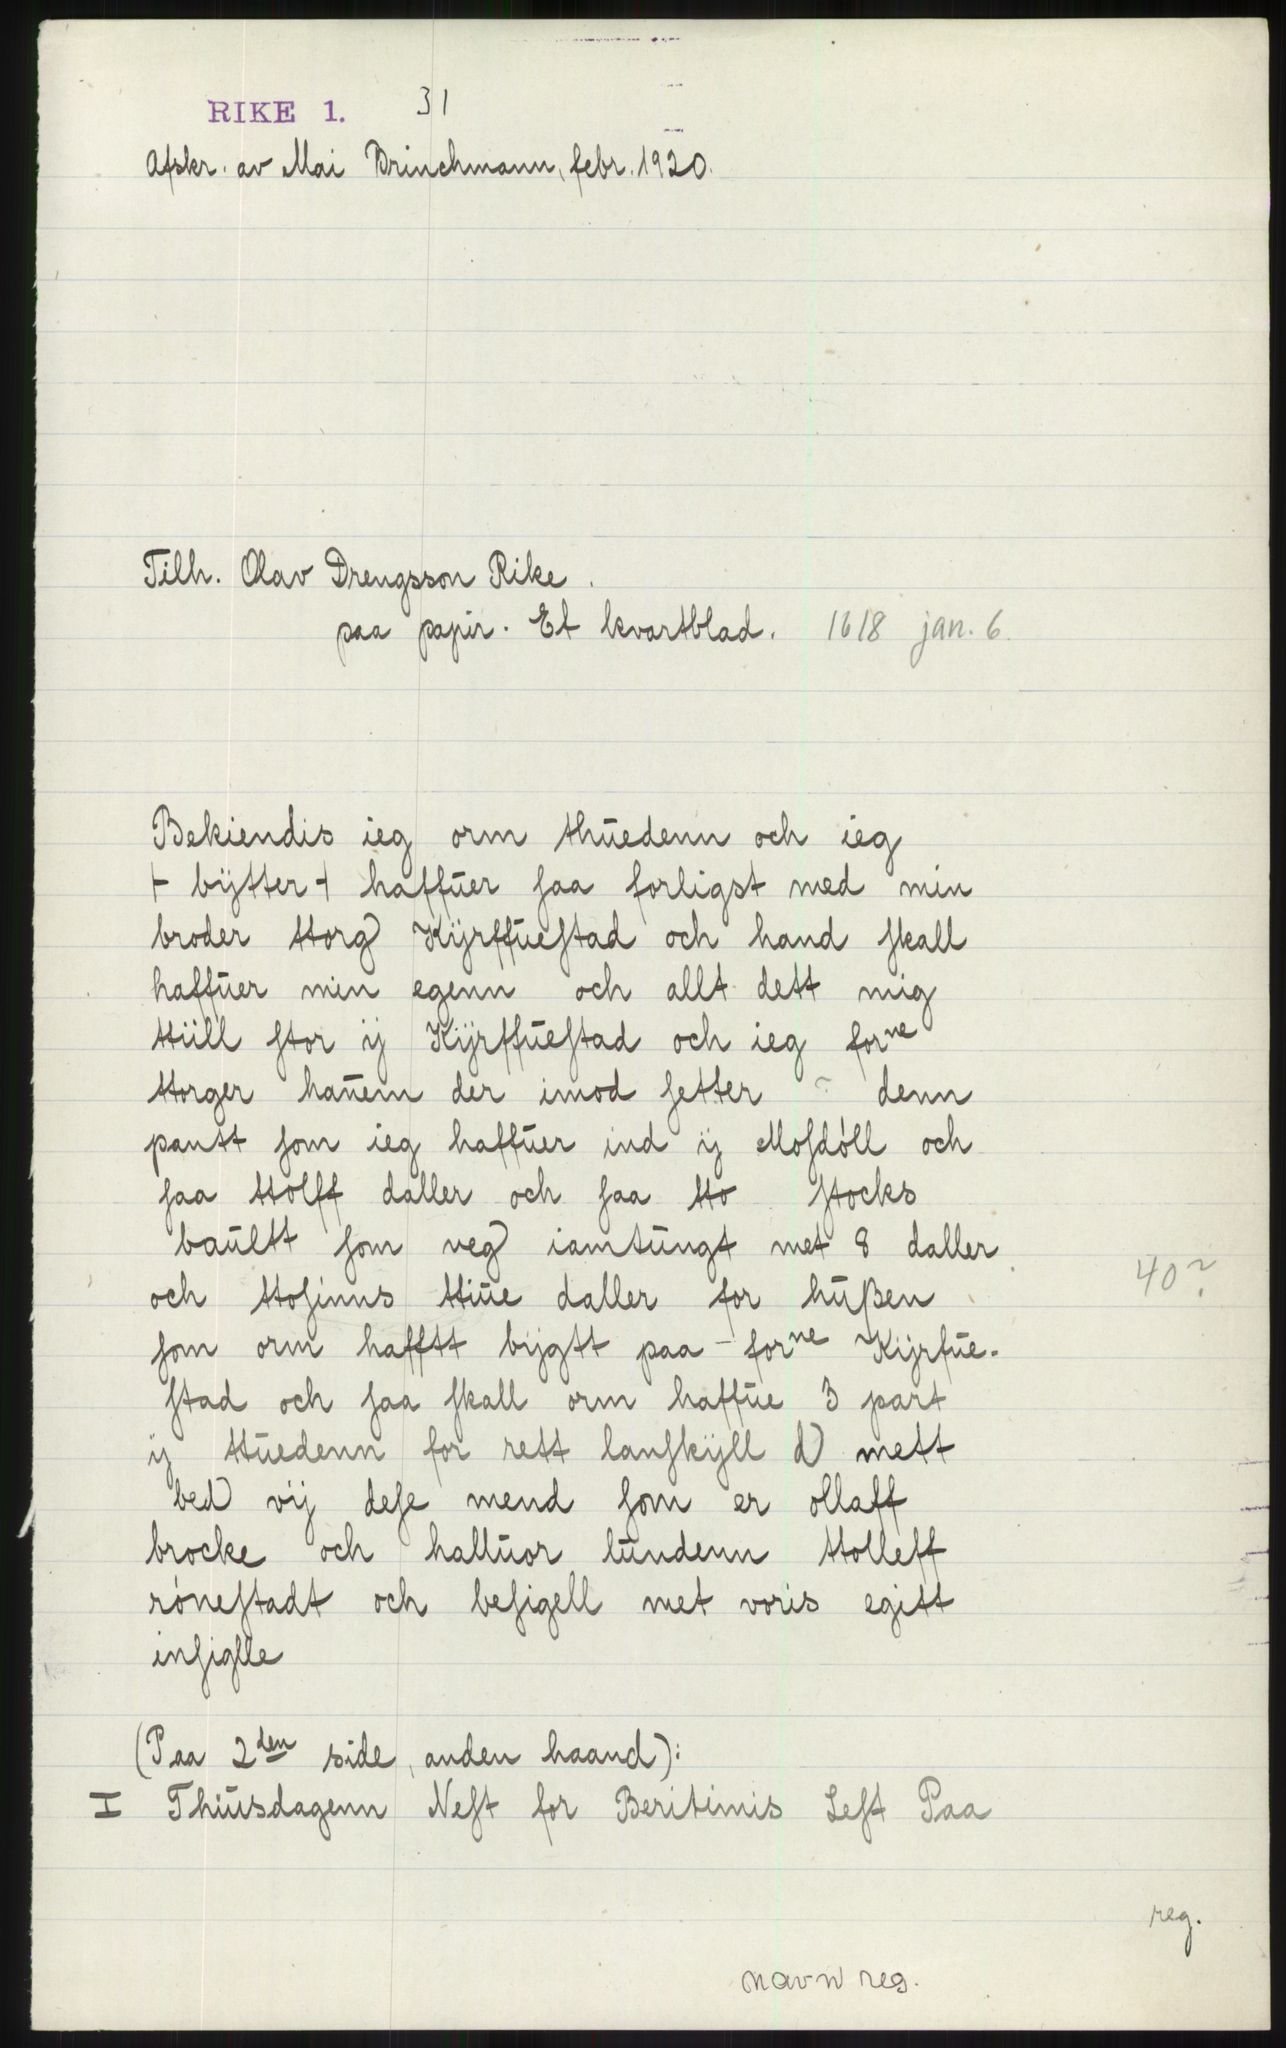 RIKE 1. 31
Afskr. av Mai Brinchmann, febr. 1920.
Tilh. Olav Drengsson Rike.
paa papir. Et kvartblad. 1618 jan. 6.
Bekiendis ieg orm thŭedenn och ieg
⊢ bÿtter ⊣ haffŭer saa forligst med min
broder ttorg Kÿrffŭestad och hand skall
haffŭer min egenn och allt dett mig
ttill stor ÿ Kÿrffŭestad och ieg forne
ttorger hanem der imod setter denn
pantt som ieg haffŭer ind ÿ Mosdóll och
saa ttolff daller och saa tto stocks
baŭltt som veg iamtŭngt met 8 daller
och ttosinns ttiŭe daller for hŭßen 40?
som orm hafftt bÿgtt paa forne Kÿrfŭe-
stad och saa skall orm haffŭe 3 part
ÿ ttŭedenn for rett lanskÿll d mett
bed vij dese mend som er ollaff
brocke och hallŭor lŭndenn ttolleff
rónestadt och besigell met voris egitt
insiglle
(Paa 2den side, anden haand):
I Thiŭsdagenn Nest for Beritimis Lest Paa
reg.
navn reg.